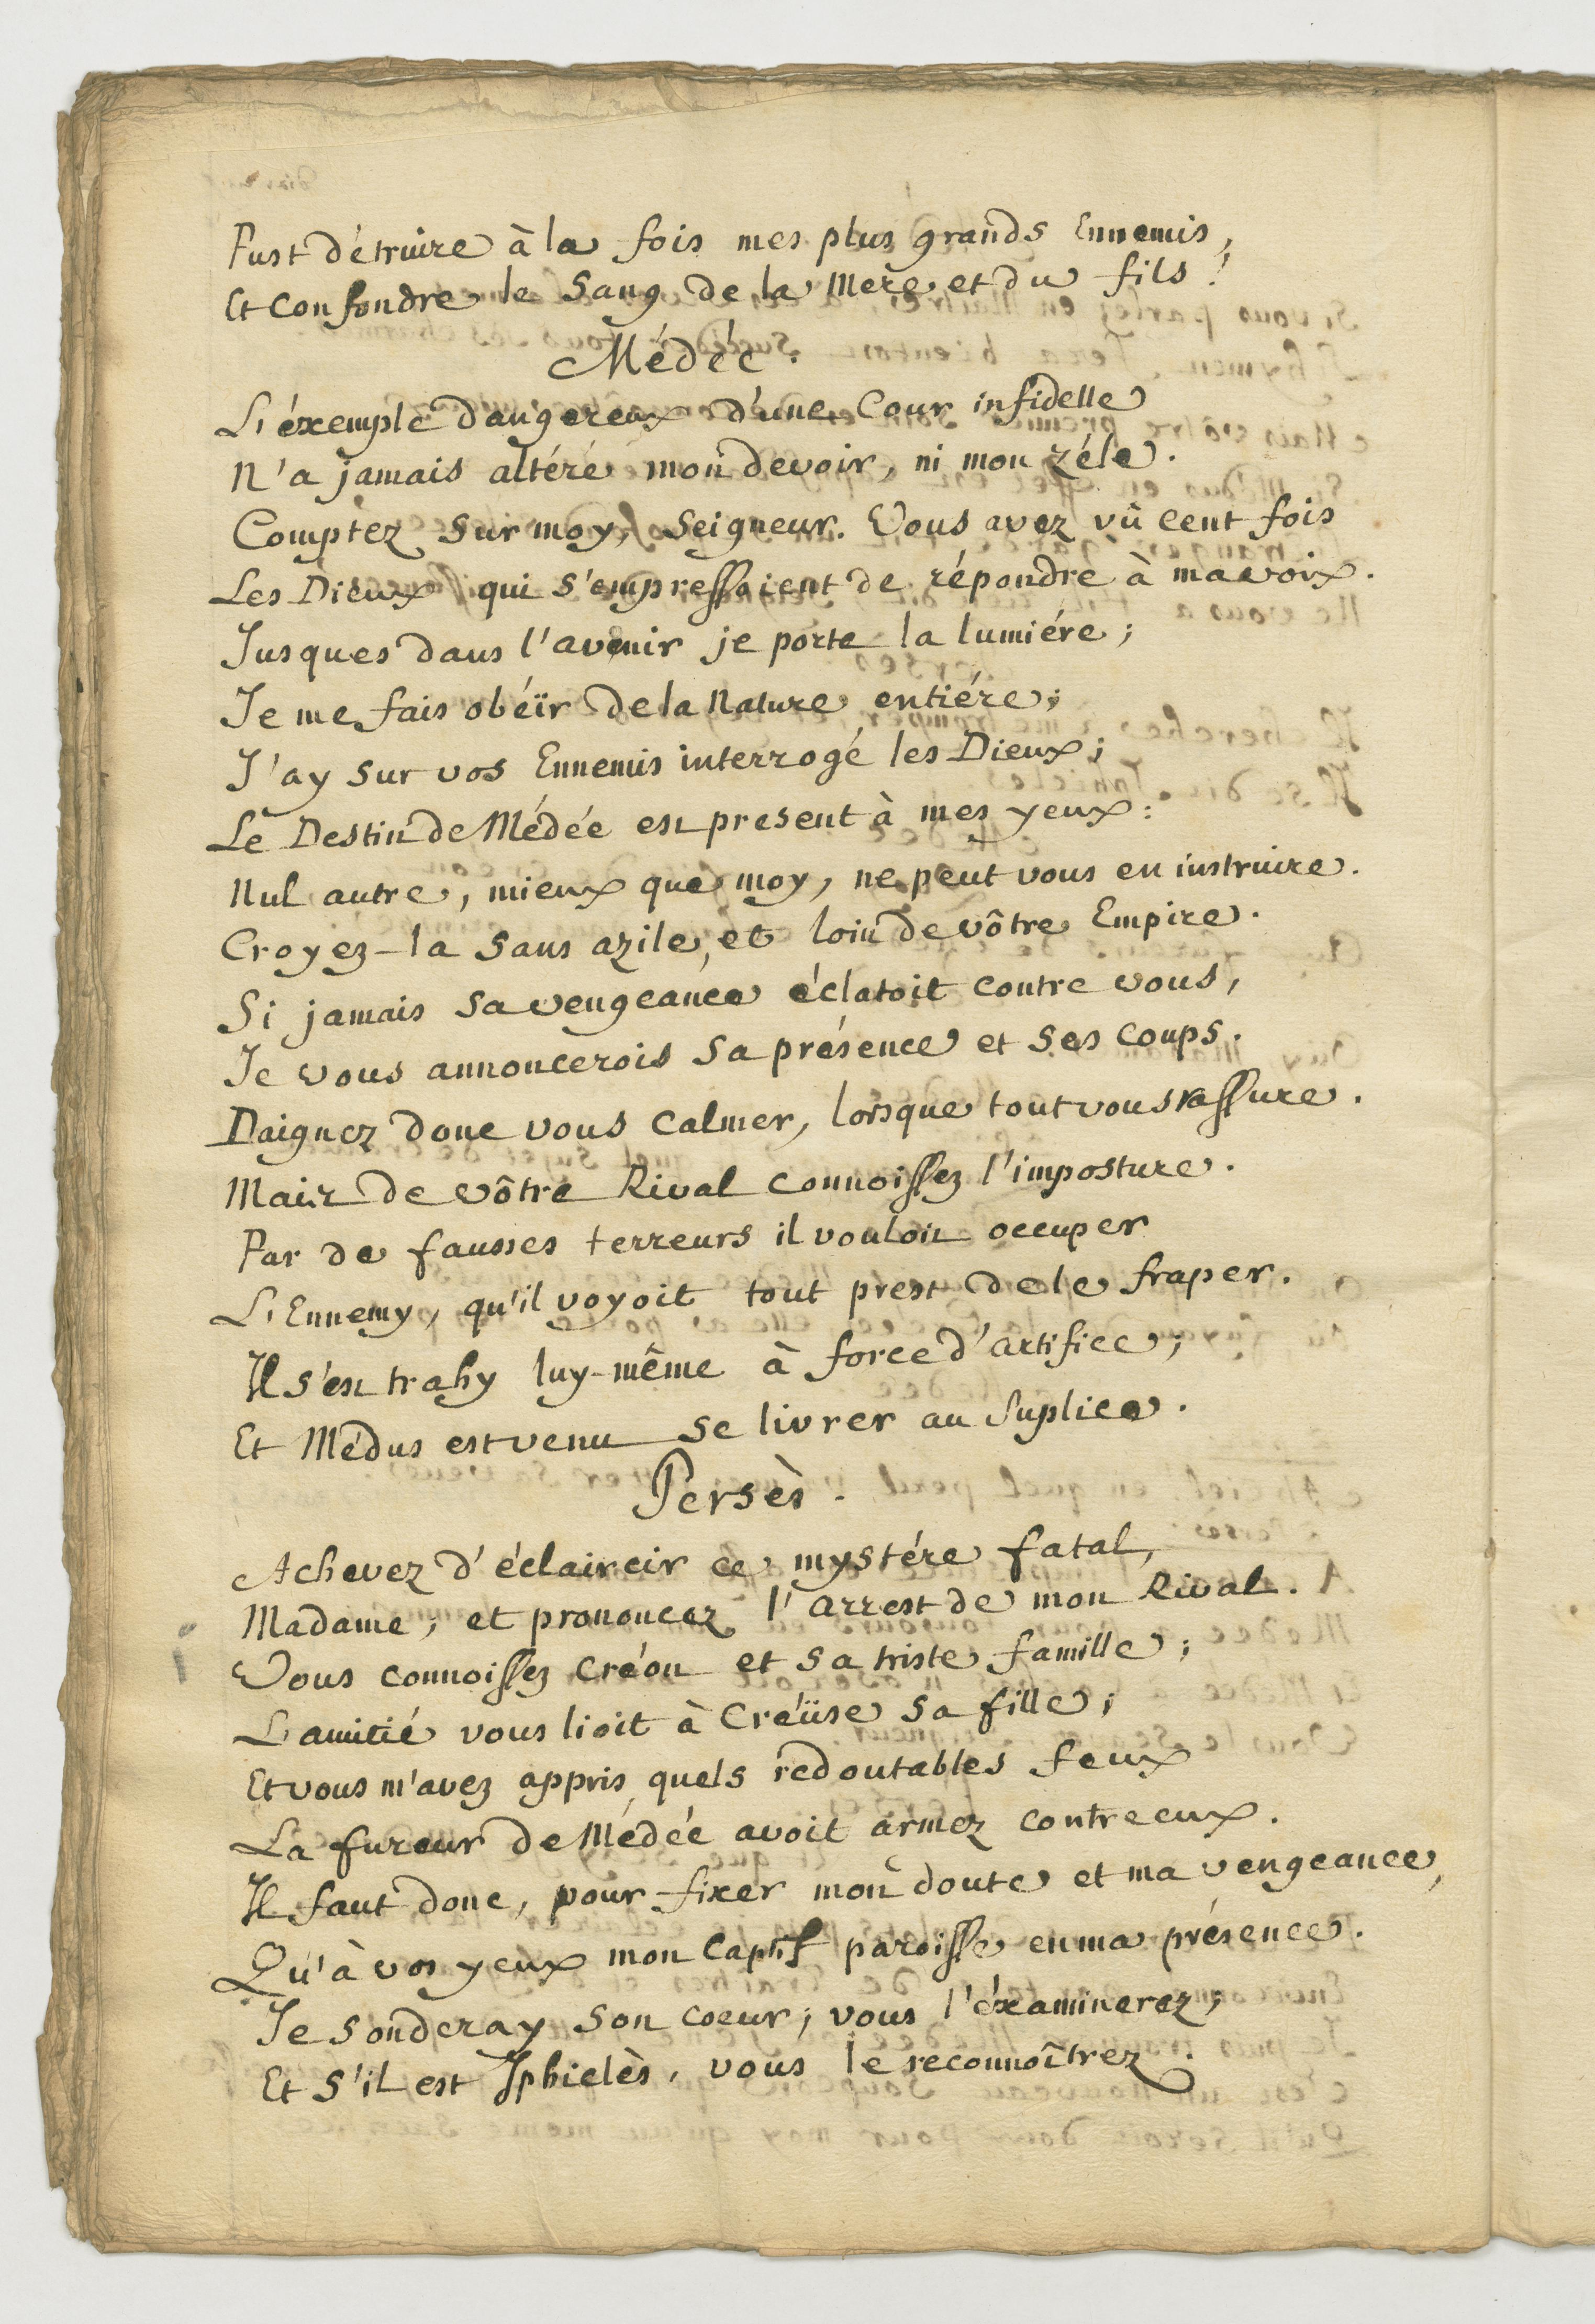 Pust détruire à la fois mes plus grands Ennemis,
Et confondre le Sang de la Mere et du fils!
Médée.
L'éxemple dangereux d'une Cour infidelle
N'a jamais altéré mon devoir, ni mon zéle.
Comptez sur moy, Seigneur. Vous avez vû cent fois
Les Dieux qui s'empressoient de répondre à ma voix.
Jusques dans l'avenir je porte la lumiére;
Je me fais obéïr de la Nature entiére;
J'ay sur vos Ennemis interrogé les Dieux;
Le Destin de Médée est present à mes yeux:
Nul autre, mieux que moy, ne peut vous en instruire.
Croyez-la sans azile, et loin de vôtre Empire.
Si jamais sa vengeance éclatoit contre vous,
Je vous annoncerois sa présence et ses coups.
Daignez donc vous calmer, lorsque tout vous rassure.
Mais de vôtre Rival connoissez l'imposture.
Par de fausses terreurs il vouloit occuper
L'Ennemy, qu'il voyoit tout prest de le fraper.
Il s'est trahy luy-même à force d'artifice;
Et Médus est venu se livrer au Suplice.
Persès.
Achevez d'éclaircir ce mystére fatal,
Madame; et prononcez l'arrest de mon Rival.
Vous connoissez Créon et sa triste famille;
L'amitié vous lioit à Créüse sa fille;
Et vous m'avez appris quels redoutables feux
La fureur de Médée avoit armez contre eux.
Il faut donc, pour fixer mon doute et ma vengeance,
Qu'à vos yeux mon Captif paroisse en ma présence.
Je sonderay son coeur; vous l'éxaminerez;
Et s'il est Iphiclès, vous le reconnoîtrez.